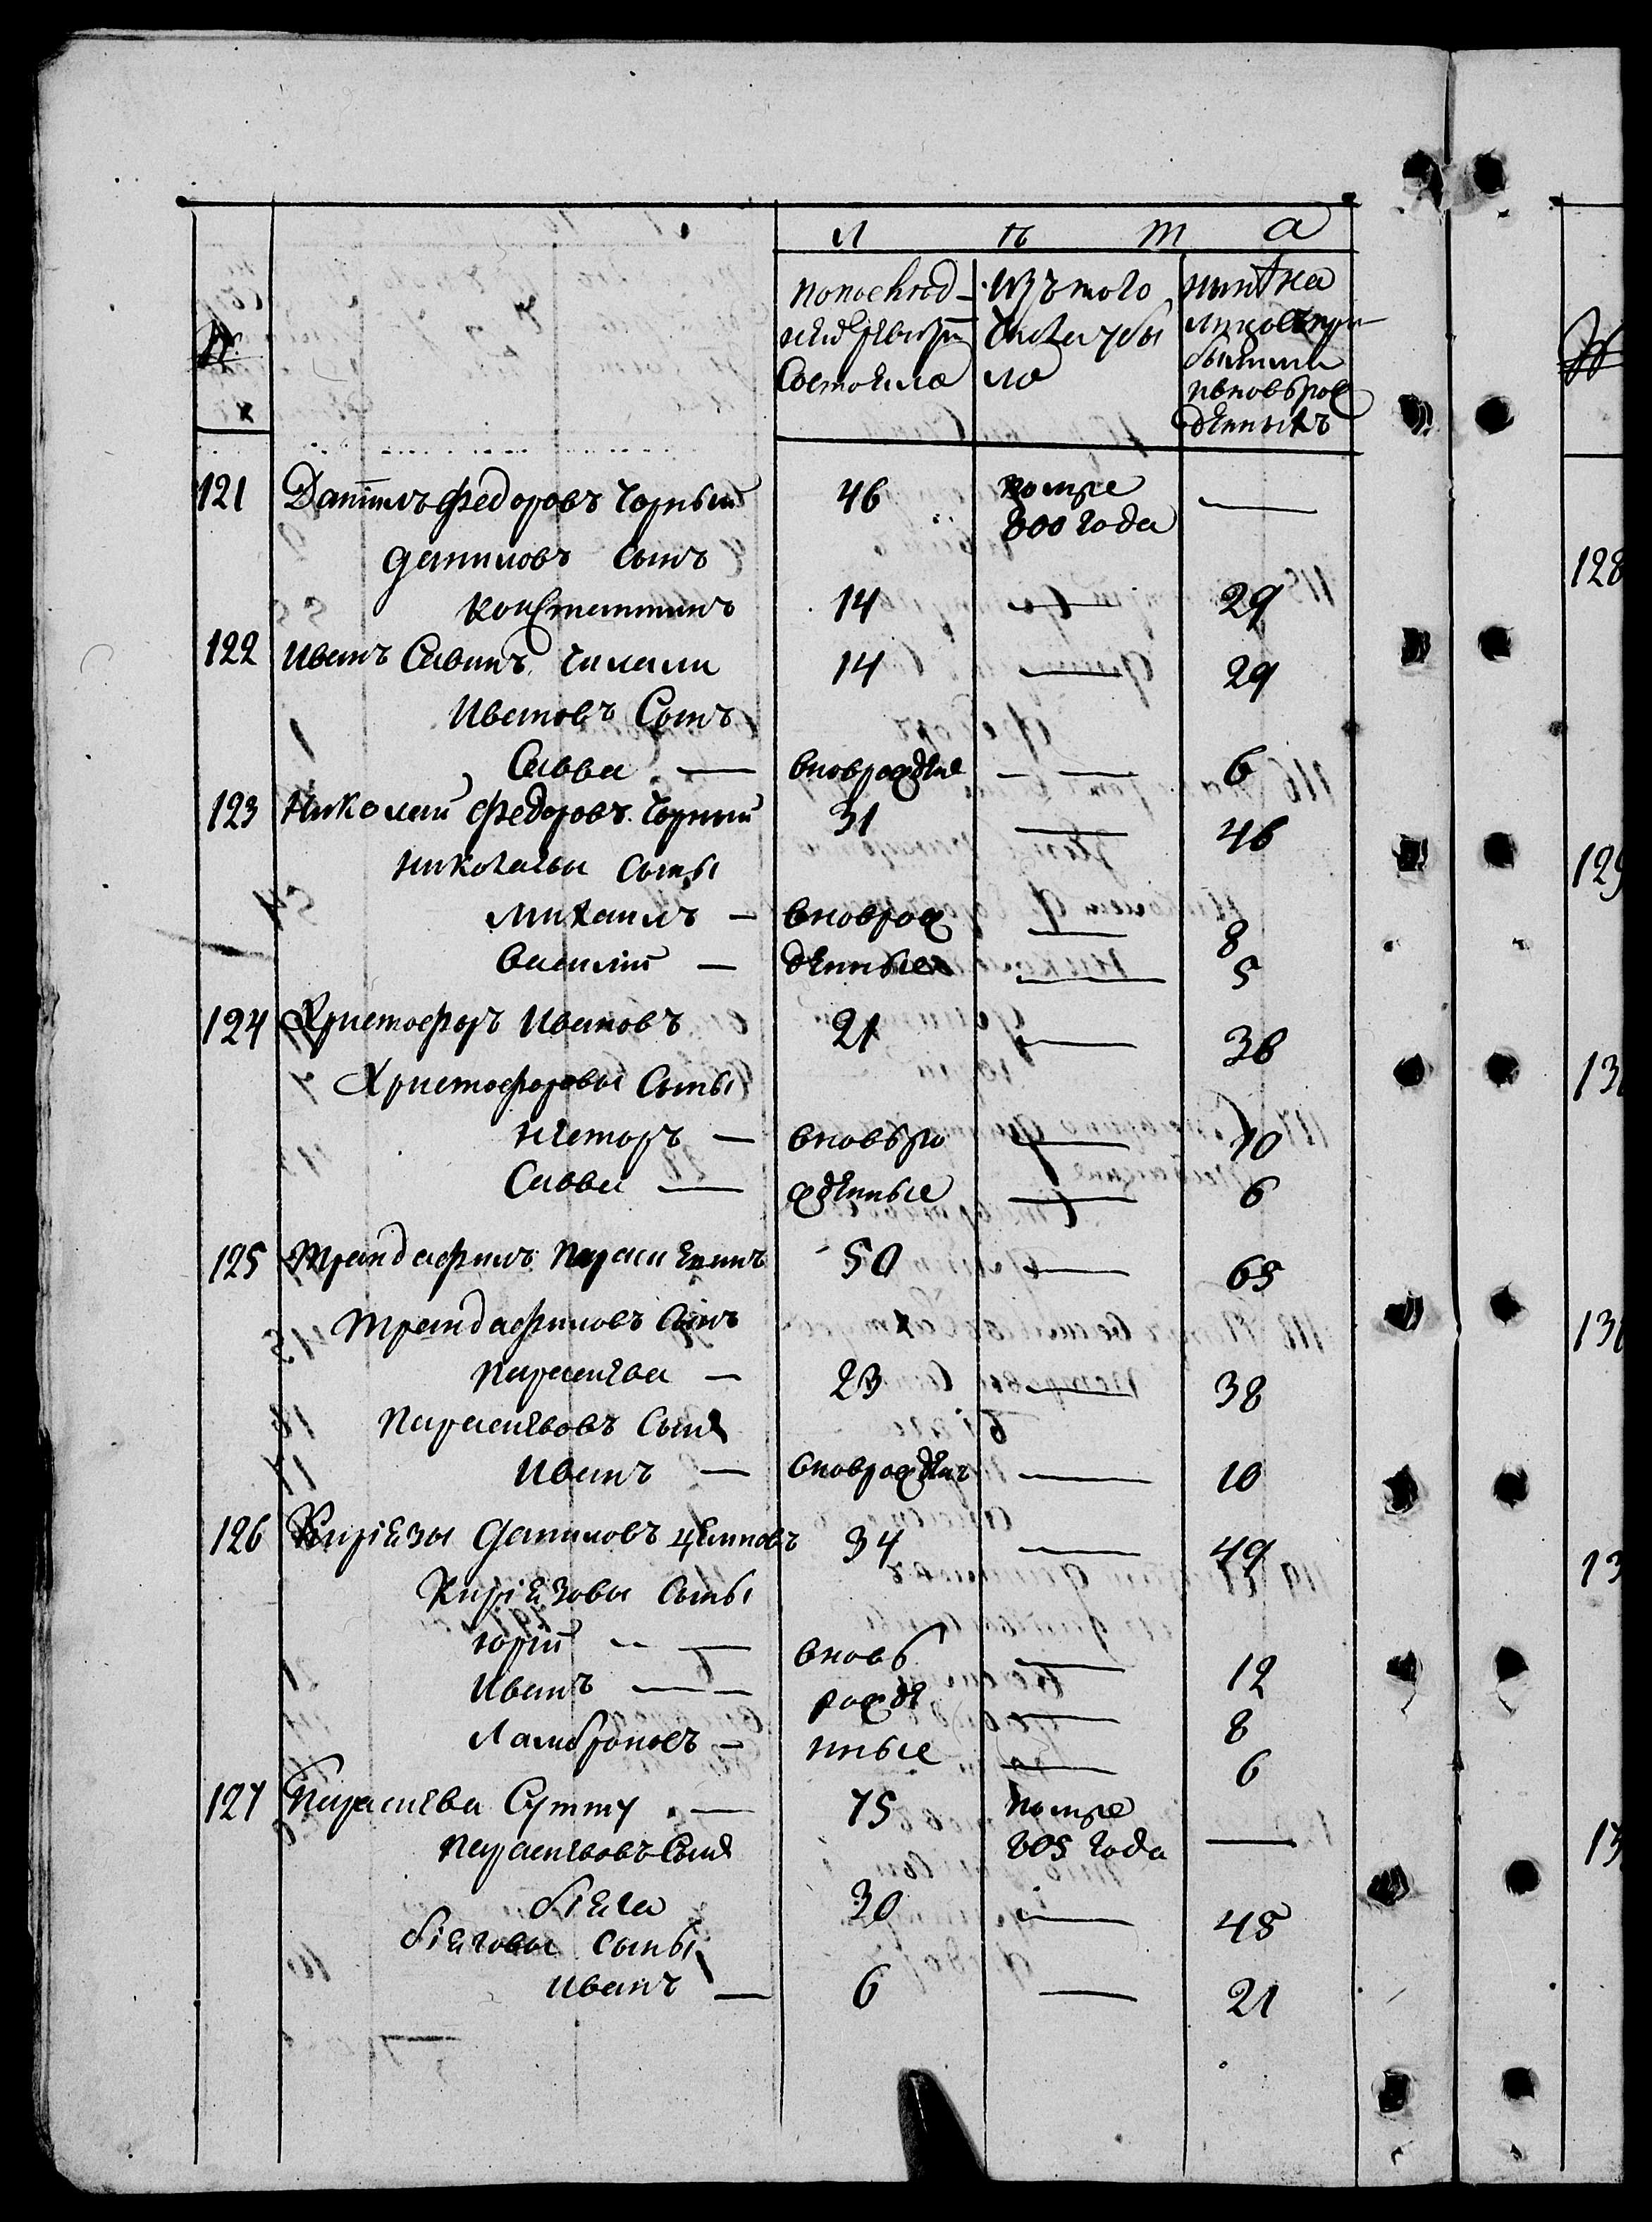 Л Ѣ Т А
№
попослѣд
ней ревизіи
состояло
изъ того
числа убы
ло
нынѣ на
лицо съ при
былыми
и вновь рож
денныхъ
121 Даніилъ Федоровъ Чорный 46 померъ —
800 года
Даниловъ Сынъ
Константинъ 14 — 29
122 Иванъ Савинъ Чилали 14 — 29
Ивановъ Сынъ
Савва — вноврожденъ — — 6
123 Николай Федоровъ Чорный 31 — 46
Николаевы Сыны
Михаилъ — вноврож — 8
Василій — денные — 5
124 Христофоръ Ивановъ 21 — 36
Христофоровы Сыны
Несторъ — вновьро — 10
Савва — жденные — 6
125 Трандафилъ Параскевинъ 50 — 65
Трандафиловъ Сынъ
Параскева — 23 — 38
Параскевовъ Сынъ
Иванъ — вноврожденъ — 10
126 Киріязы Даниловъ 34 — 49
Киріязовы Сыны
Юрій — вновь — 12
Иванъ — рожде — 8
Ламброновъ — нные — 6
127 Параскева Сутту — 75 померъ —
805 года
Параскевовъ Сынъ
біяла 30 — 45
біяловы Сыны
Иванъ — 6 — 21
128
129
13
130
13
13